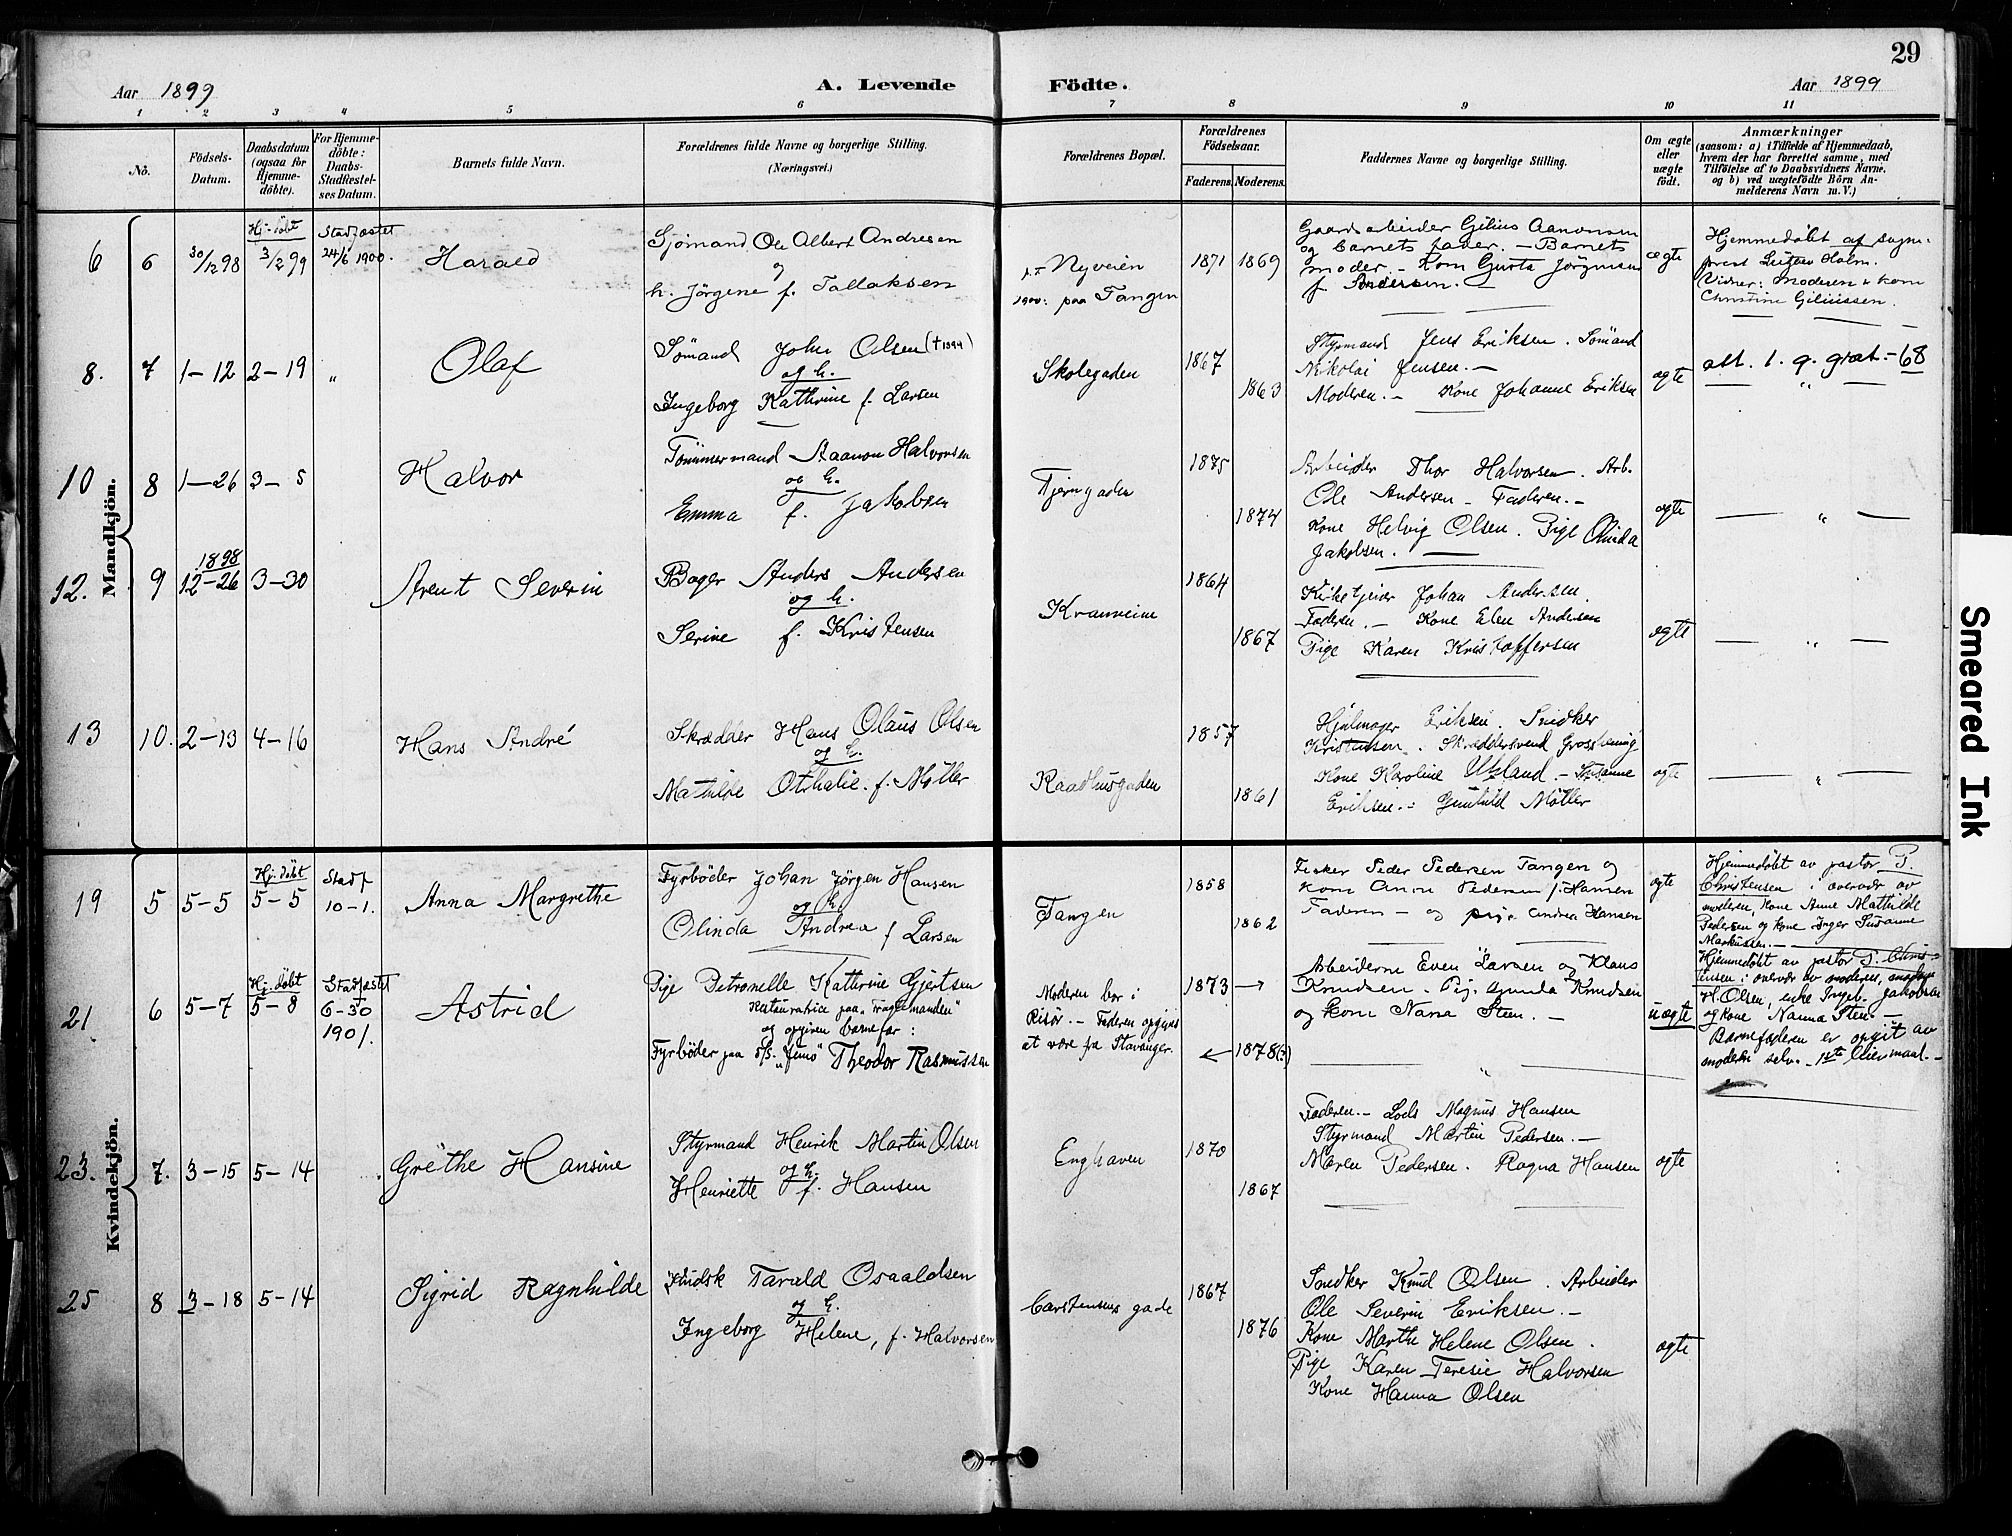 29
Aar 1899
A. Levende Födte.
Aar 1899
1 2 3 4 5 6 7 8 9 10 11
No.
Födsels-Datum.
Daabsdatum (ogsaa for Hjemmedöbte).
For Hjemmedöbte: Daabs-Stadfæstelses Datum.
Barnets fulde Navn.
Forældrenes fulde Navne og borgerlige Stilling.
(Næringsvei.)
Forældrenes Bopæl.
Forældrenes Födselsaar.
Faderens. Moderens.
Faddernes Navne og borgerlige Stilling.
Om ægte eller uægte födt.
Anmærkninger
(saasom: a) i Tilfælde af Hjemmedaab, hvem der har forrettet samme, med Tilföielse af to Daabsvidners Navne, og b) ved uægtefödte Börn Anmelderens Navn m. V.)
Mandkjön.
6 6 30/12 98
Hj-døbt
3/2 99
Stadfæstet
24/6 1900.
Harald
Sjømand Ole Albert Andresen
og
h. Jörgine f. Tallaksen
Nyveien
1900: paa Tangen
1871 1869
Gaardsarbeider Gilius Aanonsen
og barnets fader. – Barnets
moder. – Kone Gusta Jörgensen
f. Andersen.
ægte
Hjemmedöbt af sogne-
prest Holm.
Vidner: Moderen & kone
Christine Giliussen.
8. 7 1–12 2–19 „
Olaf
Sømand John Olsen († 1899)
og h.
Ingeborg Kathrine f. Larsen
Skolegaden
1867
1863
Styrmand Jens Eriksen. Sömand
Nikolai Jensen. –
Moderen. – Kone Johanne Eriksen
ægte
att. 1. g. grat. – 68
— „ —
10 8 1–26 3–5
Halvor
Tömmermand Aanon Halvorsen
og h.
Emma f. Jakobsen
Tjerngaden
1875
1874
Arbeider Thor Halvorsen. Arb.
Ole Andersen – Faderen. –
Kone Helvig Olsen. Pige Olinda
Jakobsen.
ægte
— „ —
12. 9
1898
12–26 3–30
Arent Severin
Bager Anders Andersen
og h.
Serine f. Kristensen
1864
1867
Kirketjener Johan Andersen.
Faderen. – Kone Elen Andersen
Pige Karen Kristoffersen
ægte
— „ —
13 10. 2–13 4–16
Hans André
Skrædder Hans Olaus Olsen
og h.
Mathilde Othalie. f. Møller
Raadhusgaden
1857
1861
Hjulmager Eriksen. Snedker
Kristensen. Skræddersvend
Kone Karoline – Susanne
Eriksen. – Gunhild Möller
ægte
— „ —
Kvindekjön.
19 5 5–5
Hj. döbt
5–5
Stadf
10–1.
Anna Margrethe
Fyrböder Johan Jörgen Hansen
og h.
Olinda Andrea f Larsen
Tangen
1858
1862
Fisker Peder Pedersen Tangen og
kone Anne Pedersen f. Hansen
Faderen – og pige Andrea Hansen
ægte
Hjemmedöbt av pastor P.
Christensen i overvær av
moderen, Kone Anne Mathilde
Pedersen og kone Inger Susanne
Markussen. –
21 6 5–7
Hj. döbt
5–8
Stadfæstet
6–30
1901.
Astrid
Pige Petronelle Kathrine Gjertsen
og opgiven barnefar:
Fyrböder paa D/S. „Juno" Theodor Rasmussen
Moderen bor i
Risör. – Faderen opgives
at være fra Stavanger.
1873 →
← 1878(?)
Arbeiderne Even Larsen og Klaus
Knudsen. Pige Gunda Knudsen
og kone Nana Steen. –
„
uægte
Hjemmedöbt av pastor P. Chris-
tensen i overvær av moderen,
H. Olsen, enke Ingeb. Jakobsen
og kone Nanna Steen –
Barnefaderen er opgit av
moderen selv. – 1ste Leiermaal. –
23. 7. 3–15 5–14
Grethe Hansine
Styrmand Henrik Martin Olsen
og h.
Henriette f. Hansen
Enghaven
1870
1867
Faderen. – Lods Magnus Hansen
Styrmand Martin Pedersen. –
Maren Pedersen. Ragna Hansen
ægte
25 8 3–18 5–14
Sigrid Ragnhilde
Tarald Osvaldsen
og h.
Ingeborg Helene, f. Halvorsen
Carstensens gade
1867
1876
Snedker Knud Olsen. Arbeider
Ole Severin Eriksen. –
Kone Marthe Helene Olsen.
Pige Karen Teresie Halvorsen
Kone Hanna Olsen
ægte
Smeared Ink